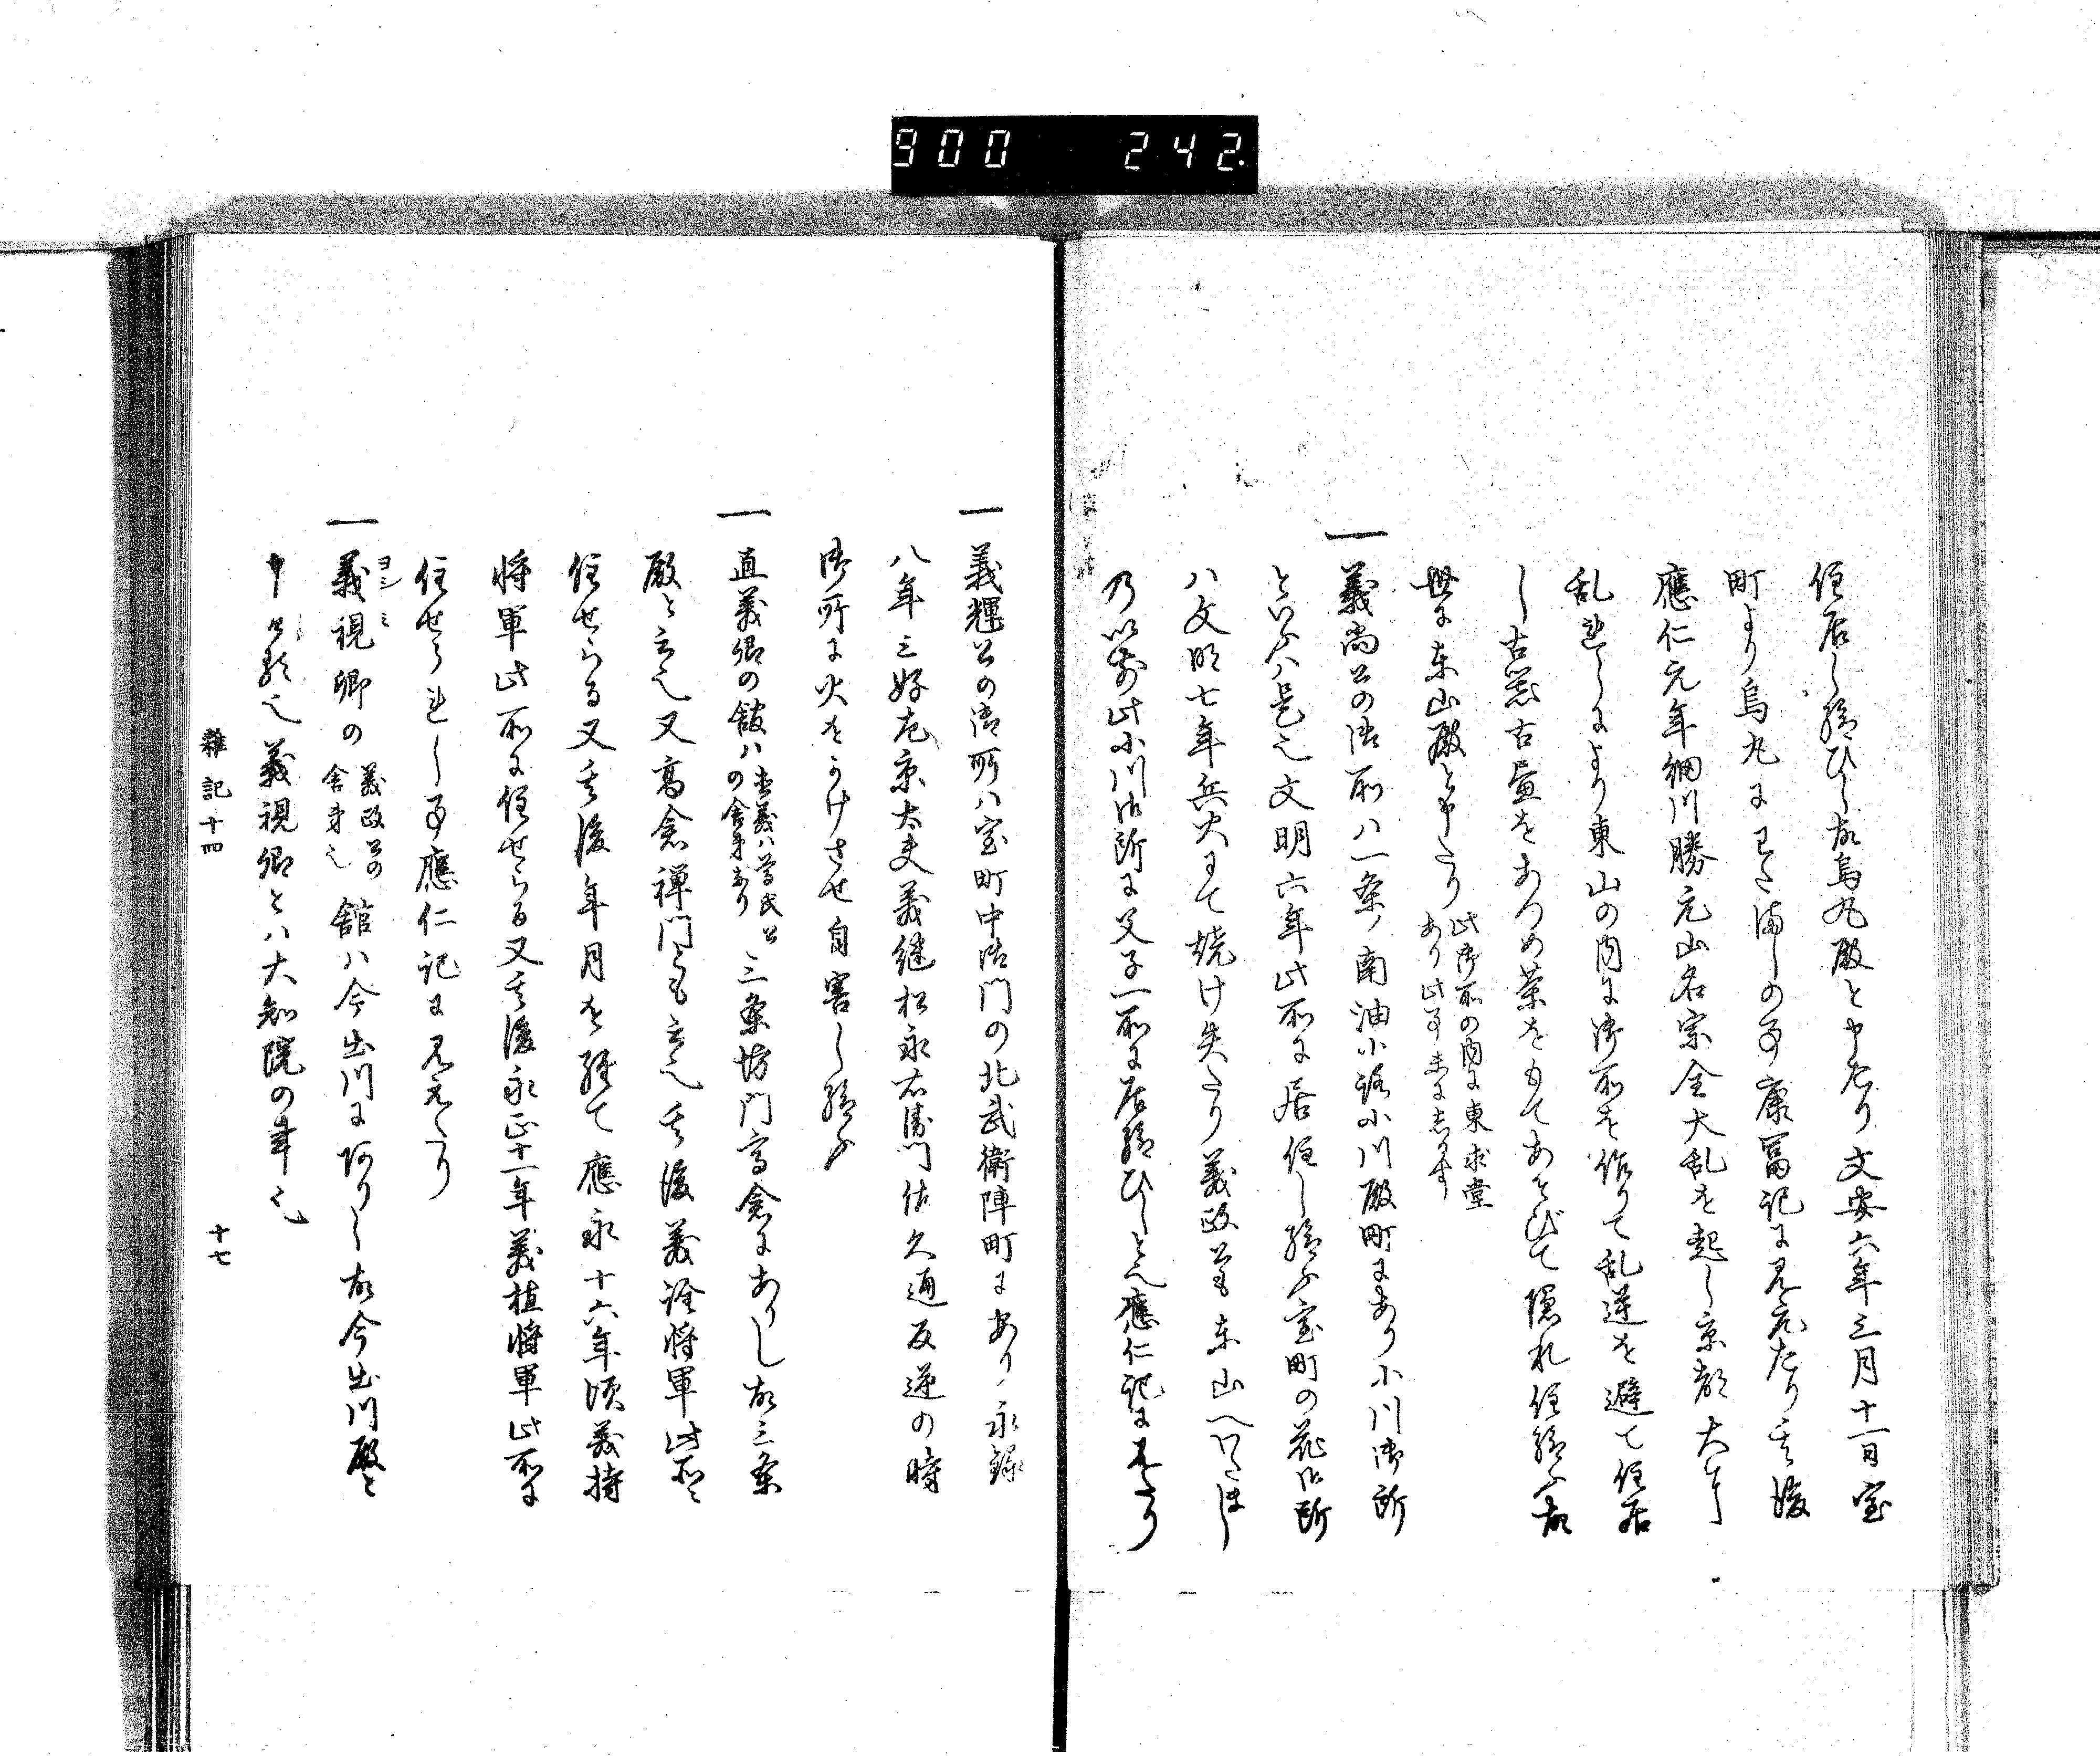 900 242.
住居し給ひし故烏丸殿と申たり文安六年三月十一日室
町より烏丸にうつましの事康冨記に見えたり其後
應仁元年細川勝元山名宗全大乱を起し京都大キニ
乱れしにより東山の内に御所を作りて乱逆を避て住居
し古器古畫をあつめ茶をもてあそびて隠れ住給ふ故
世に東山殿と申たり
此御所の内に東求堂
あり此事末にしるす
一義尚公の御所ハ一条ノ南油小路小川殿町にあり小川御所
といふハ是也文明六年此所に居住し給ふ室町の花御所
ハ文明七年兵火にて焼け失たり義政公も東山へ
乃以前此小川御所に父子一所に居給ひしと也應仁記に見えたり
一義輝公の御所ハ室町中御門の北武衛陣町にあり永録
八年三好左京大夫義継松永右衛門佐久通反逆の時
御所に火をかけさせ自害し給ふ
一直義卿の館ハ
直義ハ尊氏公
の舎弟なり
三条坊門高倉にありし故三条
殿と云也又高倉禅門とも云也其後義詮将軍此所に
住せらる又其後年月を経て應永十六年頃義持
将軍此所に住せらる又其後永正十一年義植将軍此所に
住せられし事應仁記に見えたり
一義視卿の
ヨシミ
義政公の
舎弟也
館ハ今出川に阿りし故今出川殿と
申ける也義視卿とハ大智院の事也
雜記十四
十七